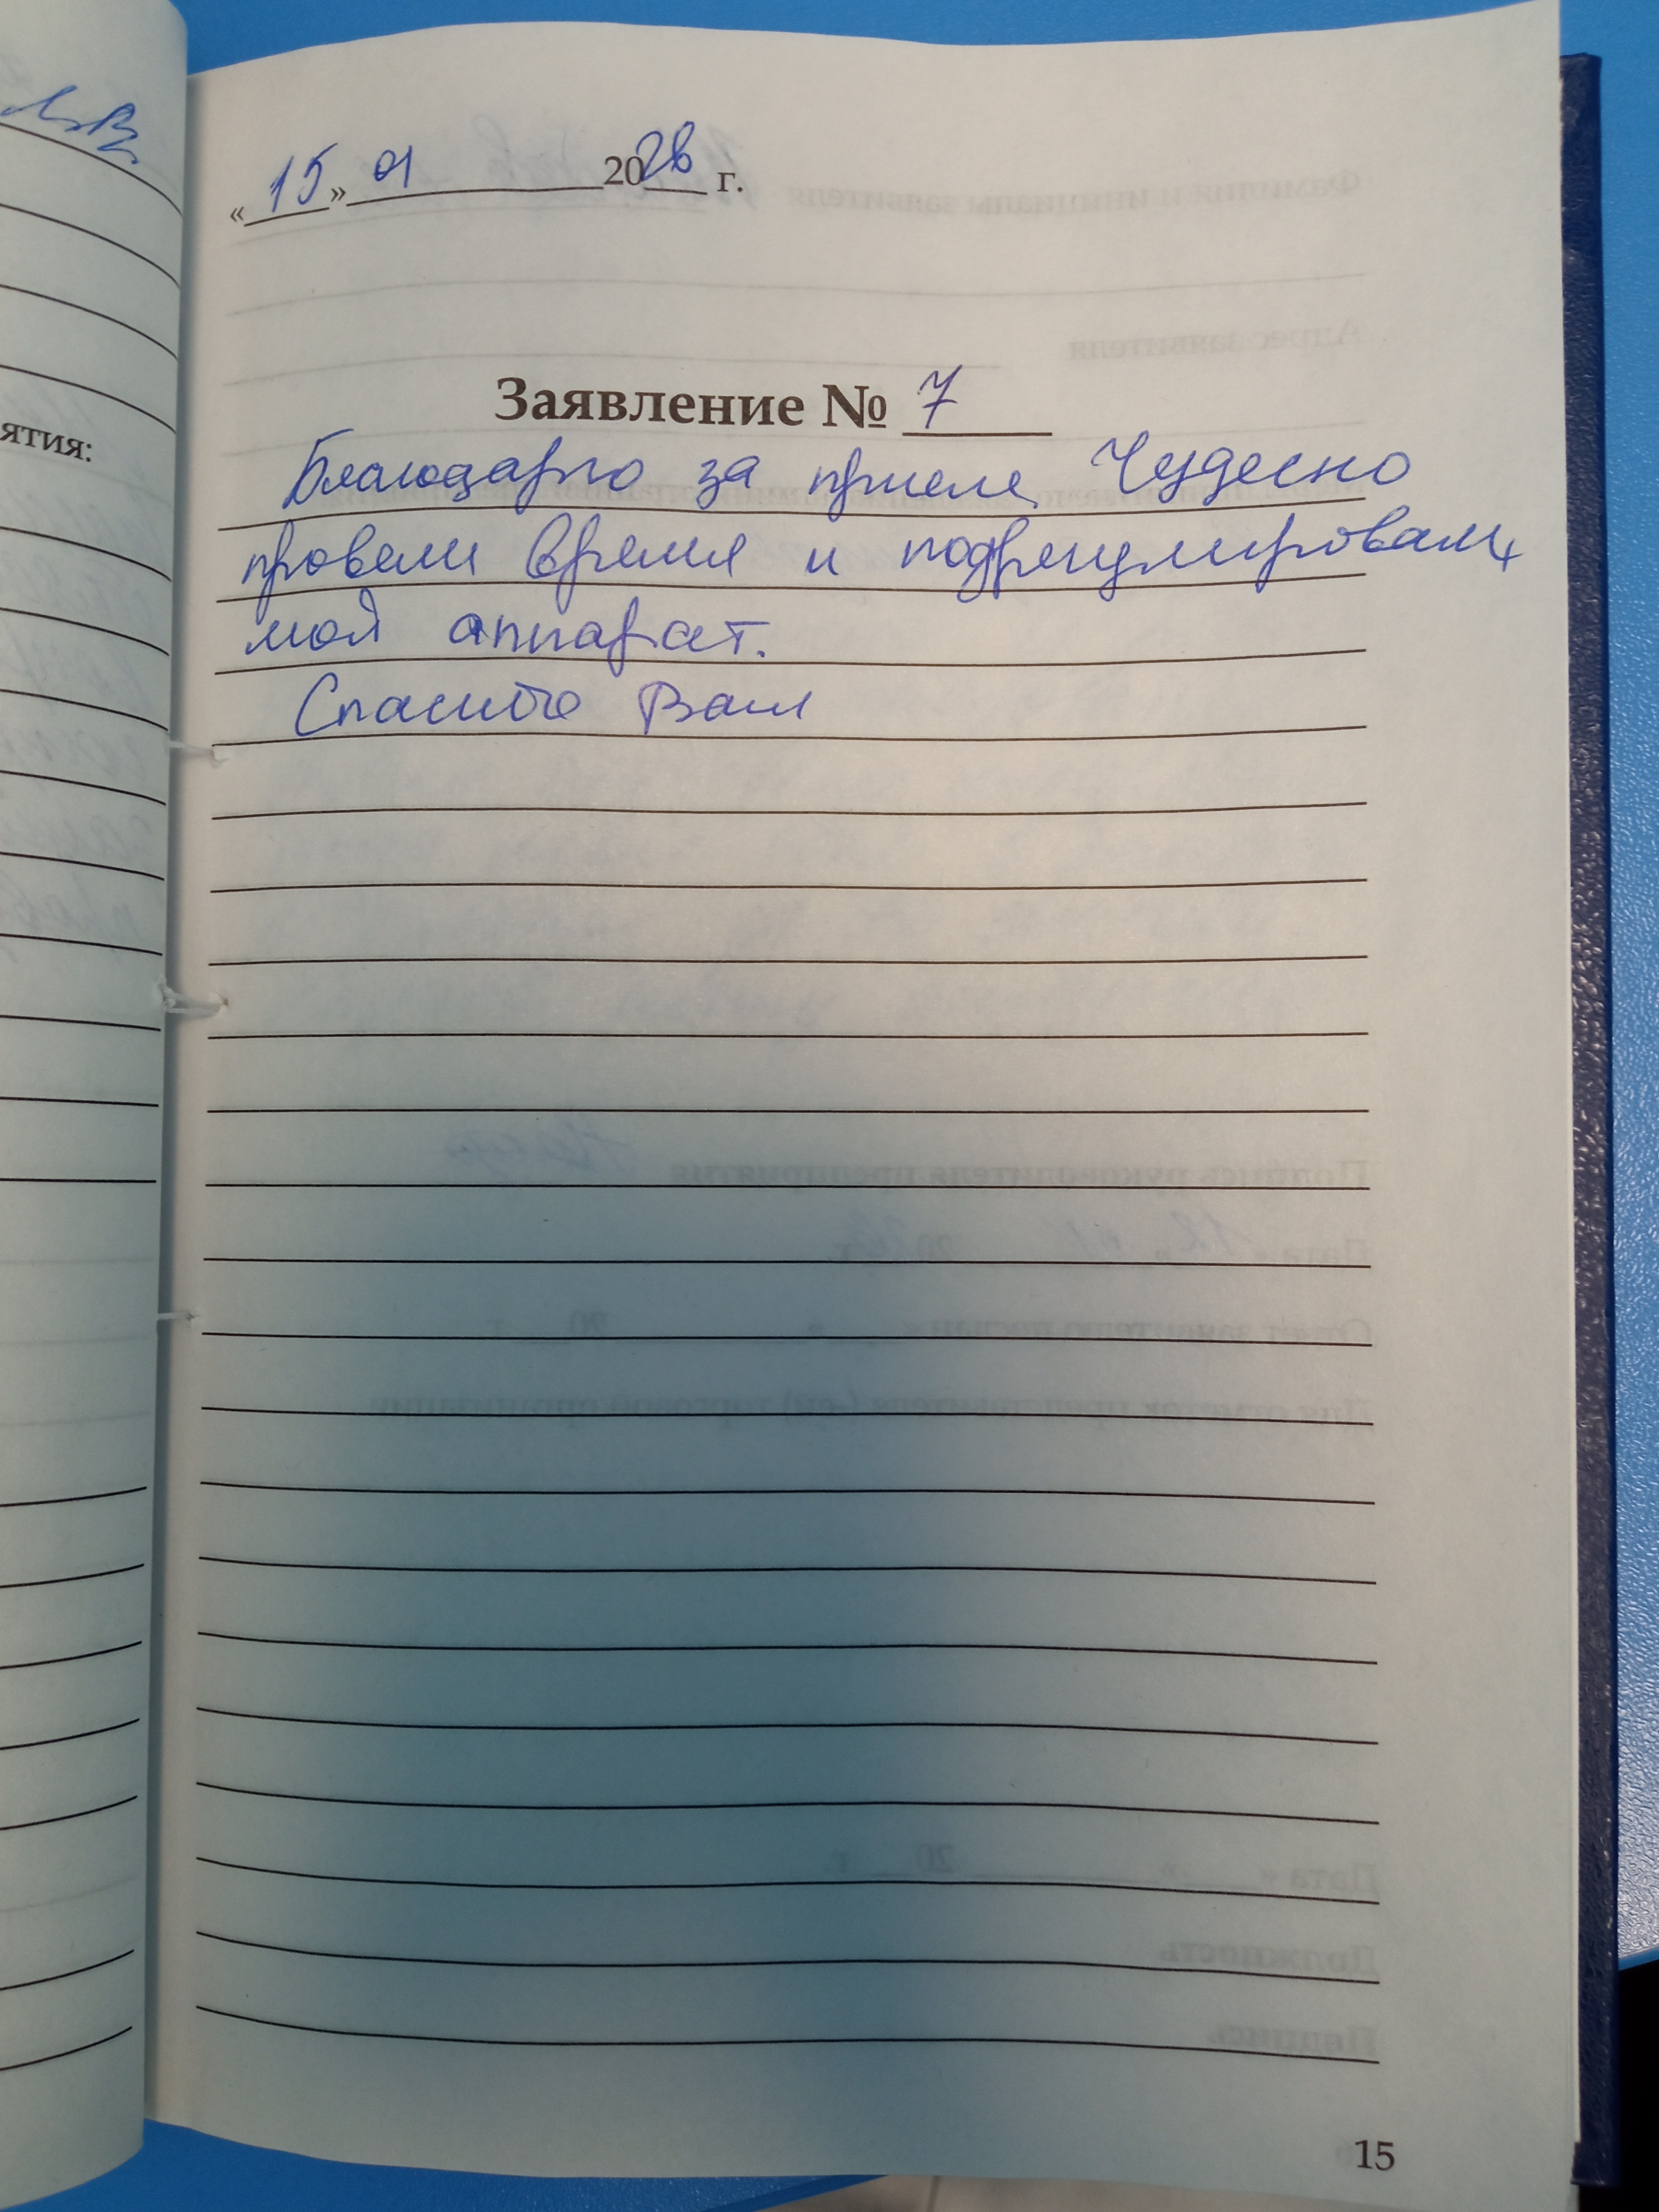 «15» 01 2026 г.
Заявление № 7
Благодарю за прием. Чудесно
провели время и подрегулировали
мой аппарат.
Спасибо Вам
ятия:
15